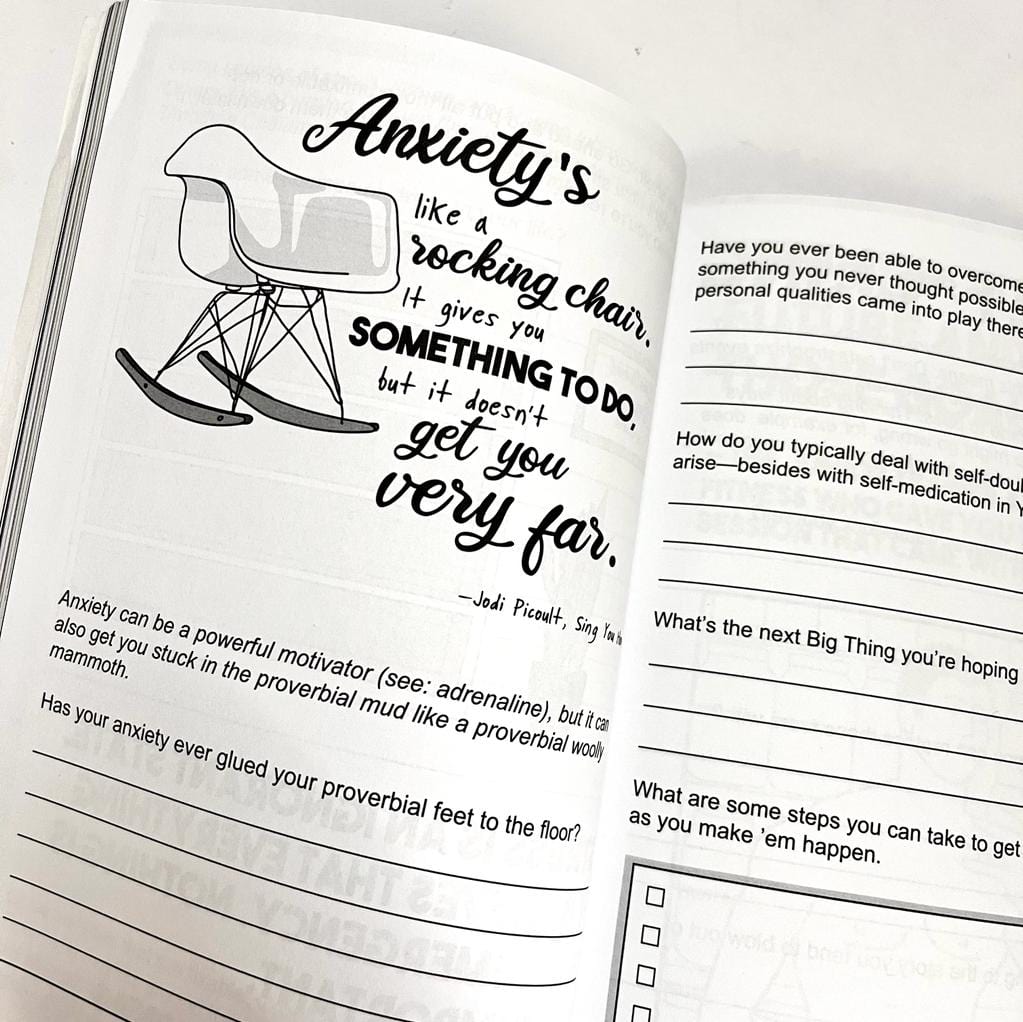 Anxiety's
like a
rocking chair.
It gives you
SOMETHING TO DO,
but it doesn't
get you
very far.
—Jodi Picoult, Sing You
Anxiety can be a powerful motivator (see: adrenaline), but it can
also get you stuck in the proverbial mud like a proverbial woolly
mammoth.
Has your anxiety ever glued your proverbial feet to the floor?
Have you ever been able to overcome
something you never thought possible
personal qualities came into play there
How do you typically deal with
arise—besides with self-medication in
What's the next Big Thing you're hoping
What are some steps you can take to get
as you make 'em happen.